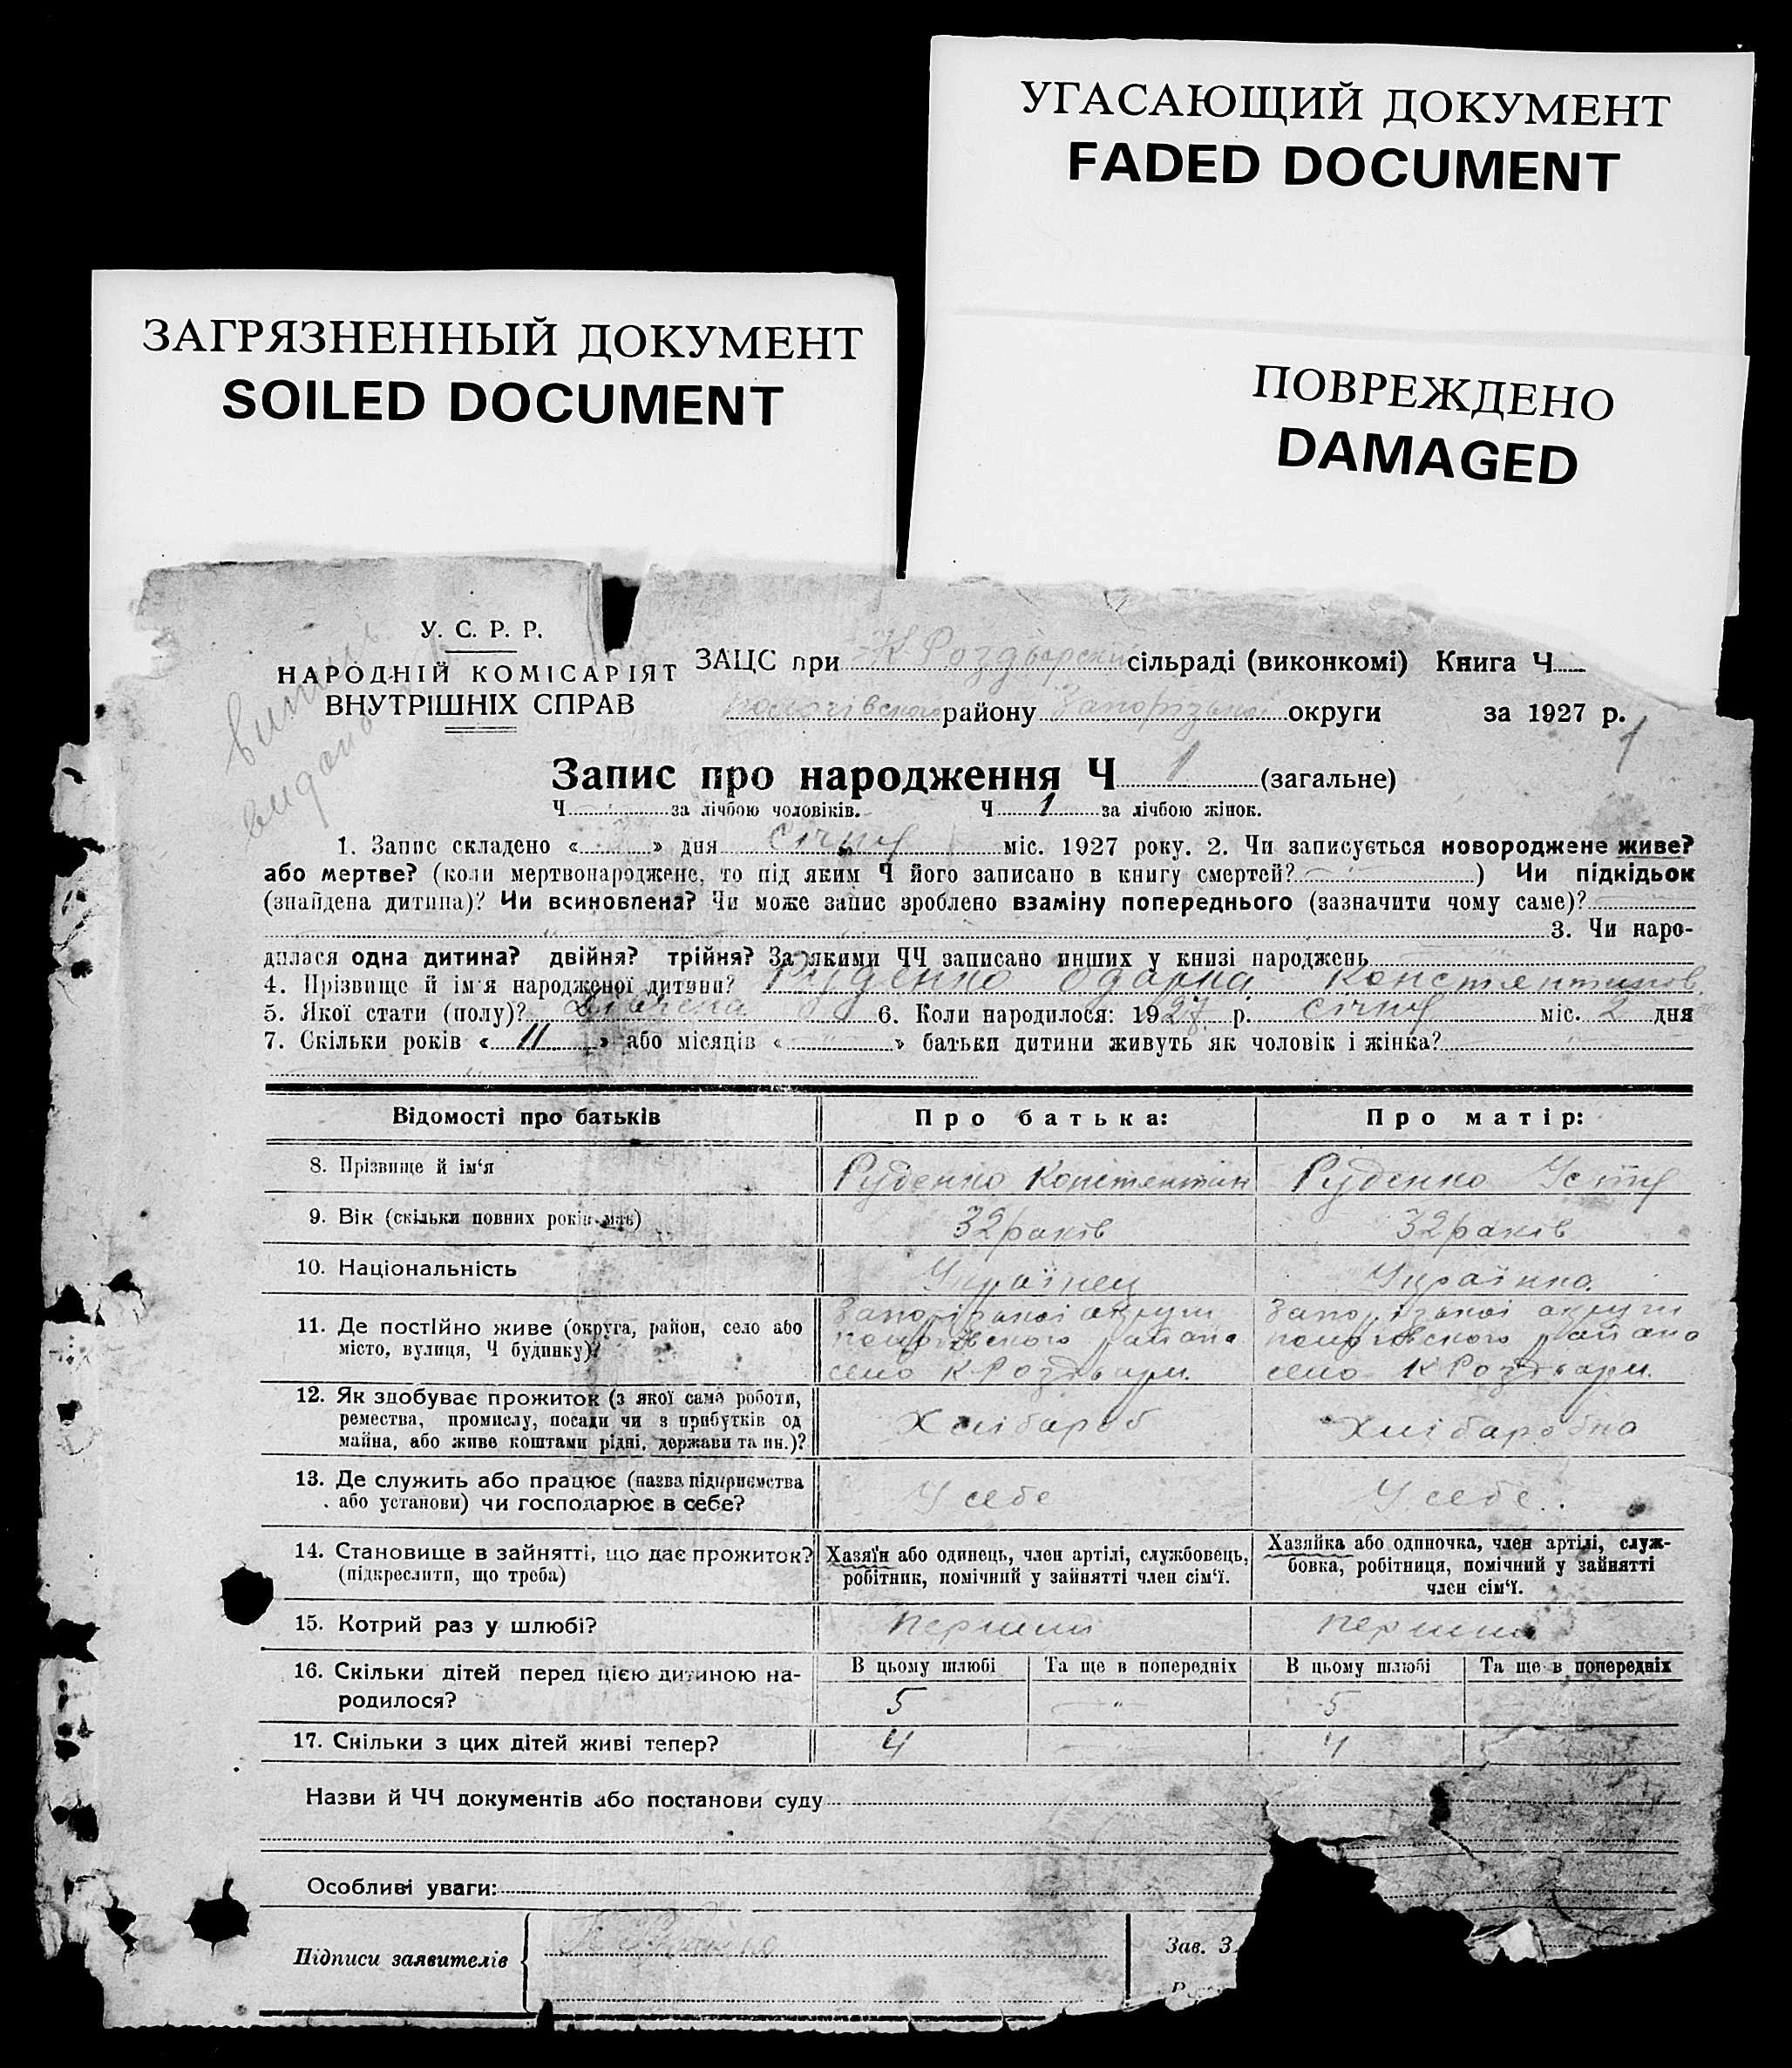 УГАСАЮЩИЙ ДОКУМЕНТ
FADED DOCUMENT
ЗАГРЯЗНЕННЫЙ ДОКУМЕНТ
SOILED DOCUMENT
ПОВРЕЖДЕНО
DAMAGED
У. С. Р. Р.
НАРОДНІЙ КОМІСАРІЯТ
ВНУТРІШНІХ СПРАВ
видано
ЗАЦС при сільраді (виконкомі) Книга Ч
району Запорізької округи за 1927 р.
1
Запис про народження Ч 1 (загальне)
Ч за лічбою чоловіків. Ч 1 за лічбою жінок.
1. Запис складено « » дня січня міс. 1927 року. 2. Чи записується новороджене живе?
або мертве? (коли мертвонароджене, то під яким Ч його записано в книгу смертей? ) Чи підкідьок
(знайдена дитина)? Чи всиновлена? Чи може запис зроблено взаміну попереднього (зазначити чому саме)?
3. Чи наро-
дилася одна дитина? двійня? трійня? За якими ЧЧ записано инших у книзі народжень
4. Прізвище й ім'я народженої дитини? Руденко Одарка Констентинов.
5. Якої стати (полу)? 6. Коли народилося: 1927 р. січня міс. 2 дня
7. Скільки років « 11 » або місяців « » батьки дитини живуть як чоловік і жінка?
Відомості про батьків Про батька: Про матір:
8. Прізвище й ім'я Руденко Констентин Руденко Устя
9. Вік (скільки повних років має) 32 раків 32 раків
10. Національність Українец Українка
11. Де постійно живе (округа, район, село або
місто, вулиця, Ч будинку)?
Запорізької округи Запорізької округи
району району
село К Роздори. село К Роздори.
12. Як здобуває прожиток (з якої сама роботи,
ремества, промислу, посади чи з прибутків од
майна, або живе коштами рідні, держави та ин.)?
Хлібароб Хлібаробка
13. Де служить або працює (назва підприємства
або установи) чи господарює в себе?
У себе У себе.
14. Становище в зайнятті, що дає прожиток?
(підкреслити, що треба)
Хазяїн або одинець, член артілі, службовець,
робітник, помічний у зайнятті член сім'ї.
Хазяйка або одиночка, член артілі, служ-
бовка, робітниця, помічний у зайнятті
член сім'ї.
15. Котрий раз у шлюбі? перший перший
16. Скільки дітей перед цією дитиною на-
родилося?
В цьому шлюбі Та ще в попередніх В цьому шлюбі Та ще в попередніх
5 5
17. Скільки з цих дітей живі тепер? 4 4
Назви й ЧЧ документів або постанови суду
Особливі уваги:
Підписи заявителів
Зав. З